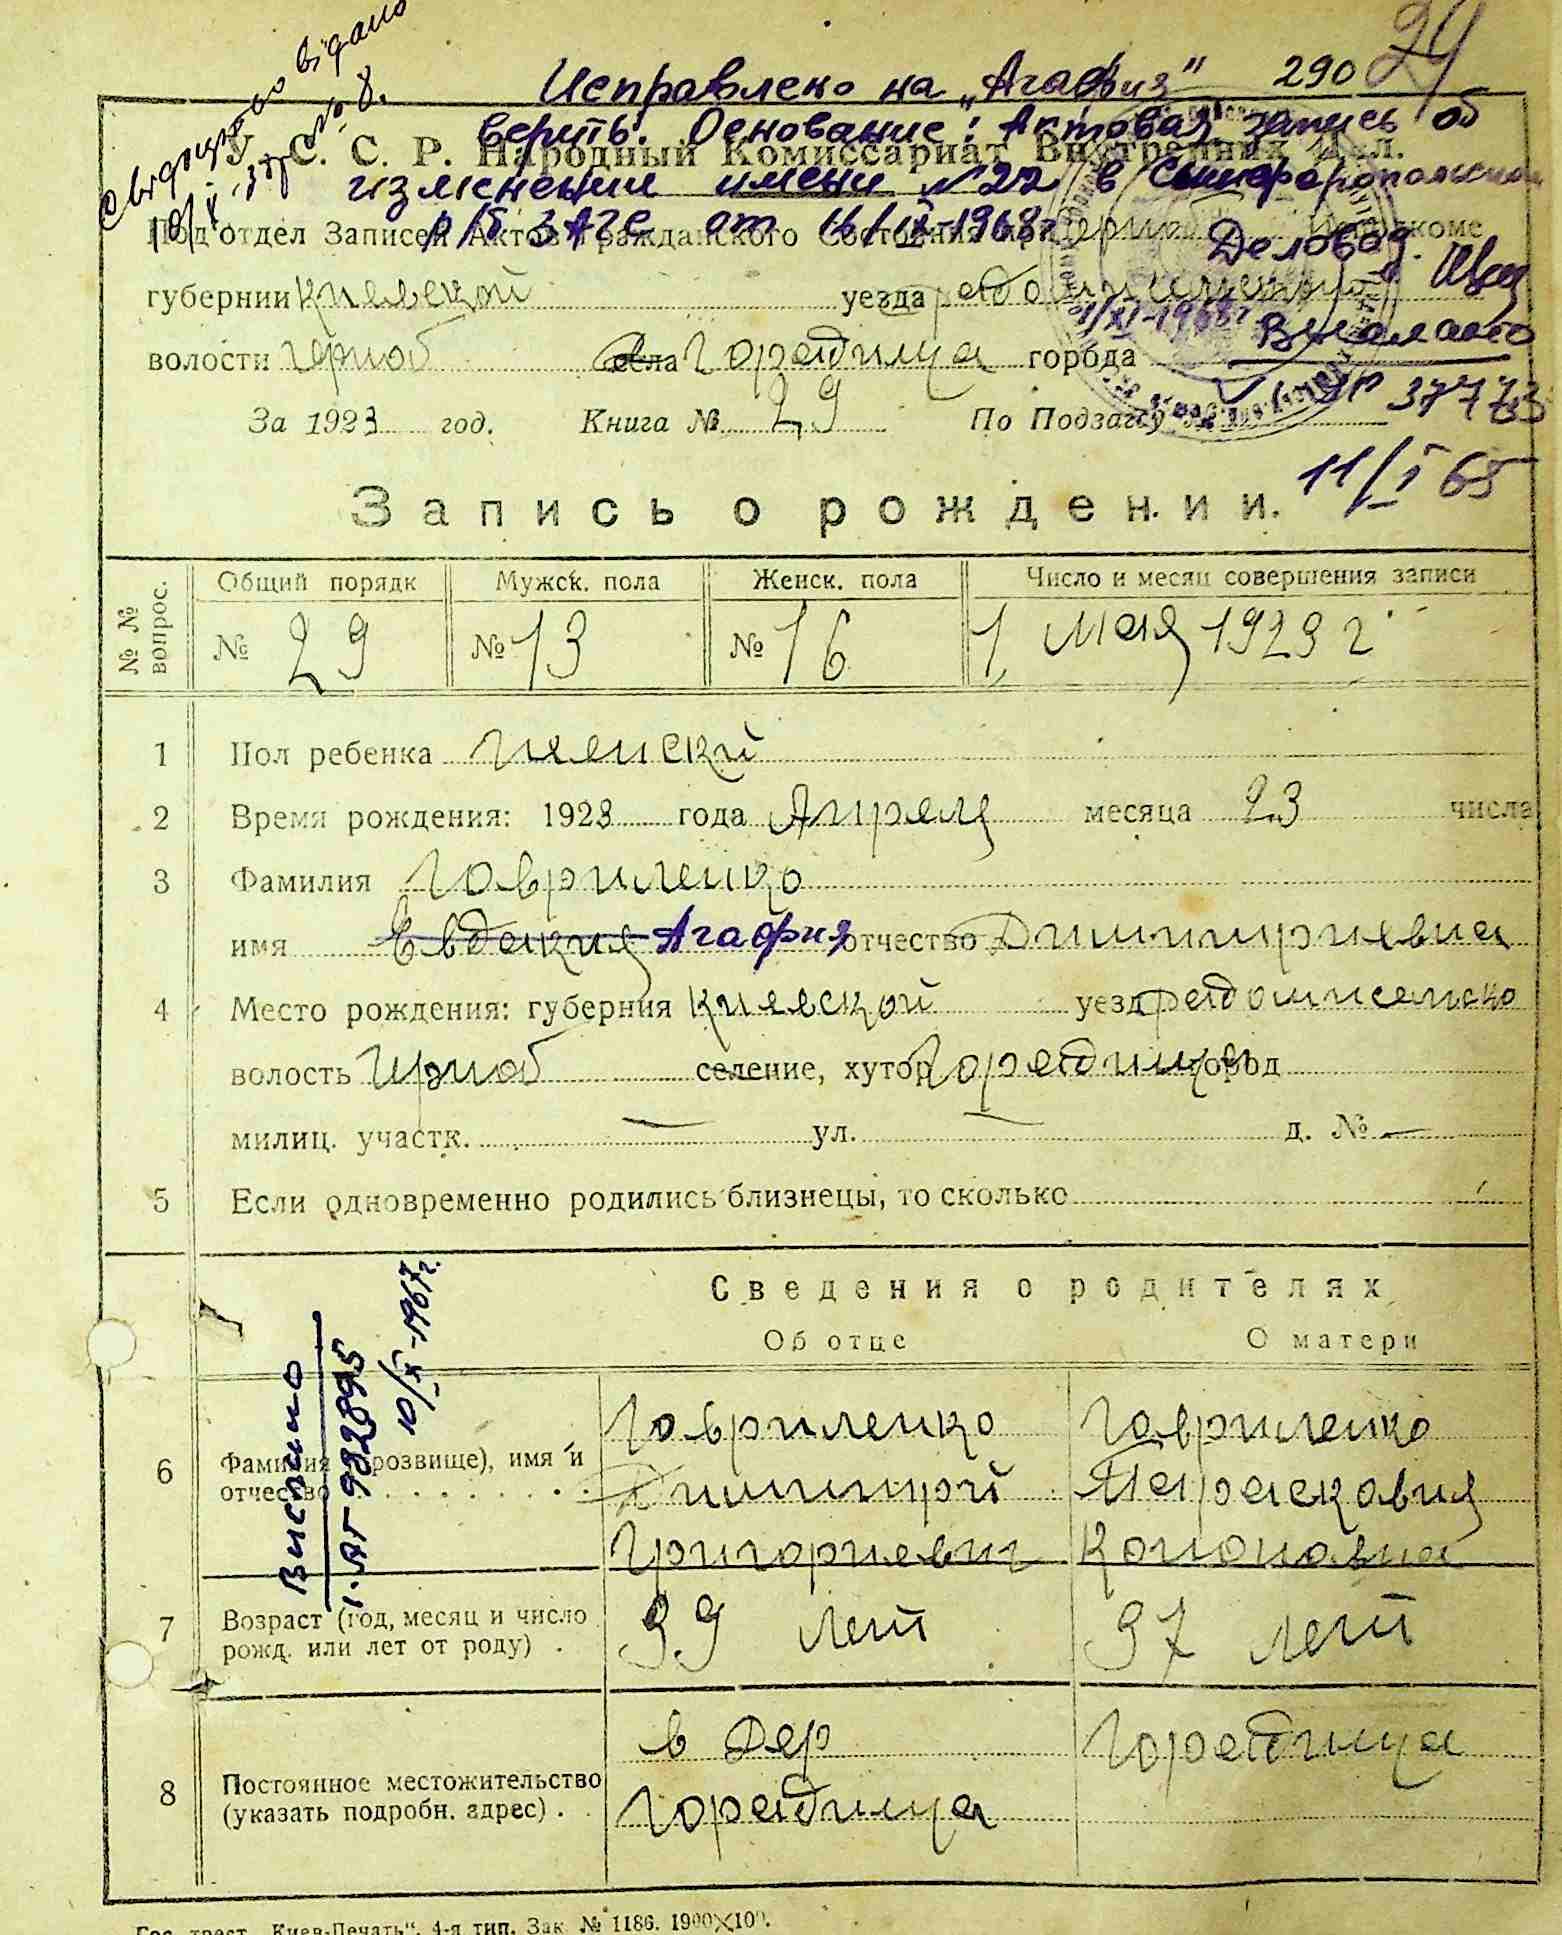 свідоцтво видано
Исправлено на „Агафия" 290 29
верить. Основание: Актовая запись об
У. С. С. Р. Народный Комиссариат Внутренних Дел.
изменении имени №22 в Симферопольском
р/б ЗАГС от 16/IX-1968г
Под'отдел Записей Актов Гражданского Состояния при Исполкоме
Деловод.
губернии Киевской уезда радомисельско
1/XI-1968г
волости Черноб села Горадища города
Видалено
За 1923 год. Книга № 29 По Подзагсу №
37773
11/I 65
Запись о рождении.
№ № вопрос. Общий порядк Мужск. пола Женск. пола Число и месяц совершения записи
№ 29 № 13 № 16 1 мая 1923 г
1 Пол ребенка женский
2 Время рождения: 1923 года Апреля месяца 23 числа
3 Фамилия Гавриленко
имя Евдокия Агафия отчество Димитриевна
4 Место рождения: губерния Киевской уезд радомисельско
волость Черноб селение, хутор Горадища город
милиц. участк. — ул. — д. № —
5 Если одновременно родились близнецы, то сколько
Сведения о родителях
Об отце О матери
Вислано
10/X-1967г.
6 Фамилия (прозвище), имя и отчество
Гавриленко Гавриленко
Димитрий Параскавия
Григориевич Кононовна
7 Возраст (год, месяц и число рожд. или лет от роду) .
39 лет 37 лет
8 Постоянное местожительство (указать подробн. адрес) .
в дер Горадища
Горадища
Гос. трест „Киев-Печать". 4-я тип. Зак № 1186. 1900×100.